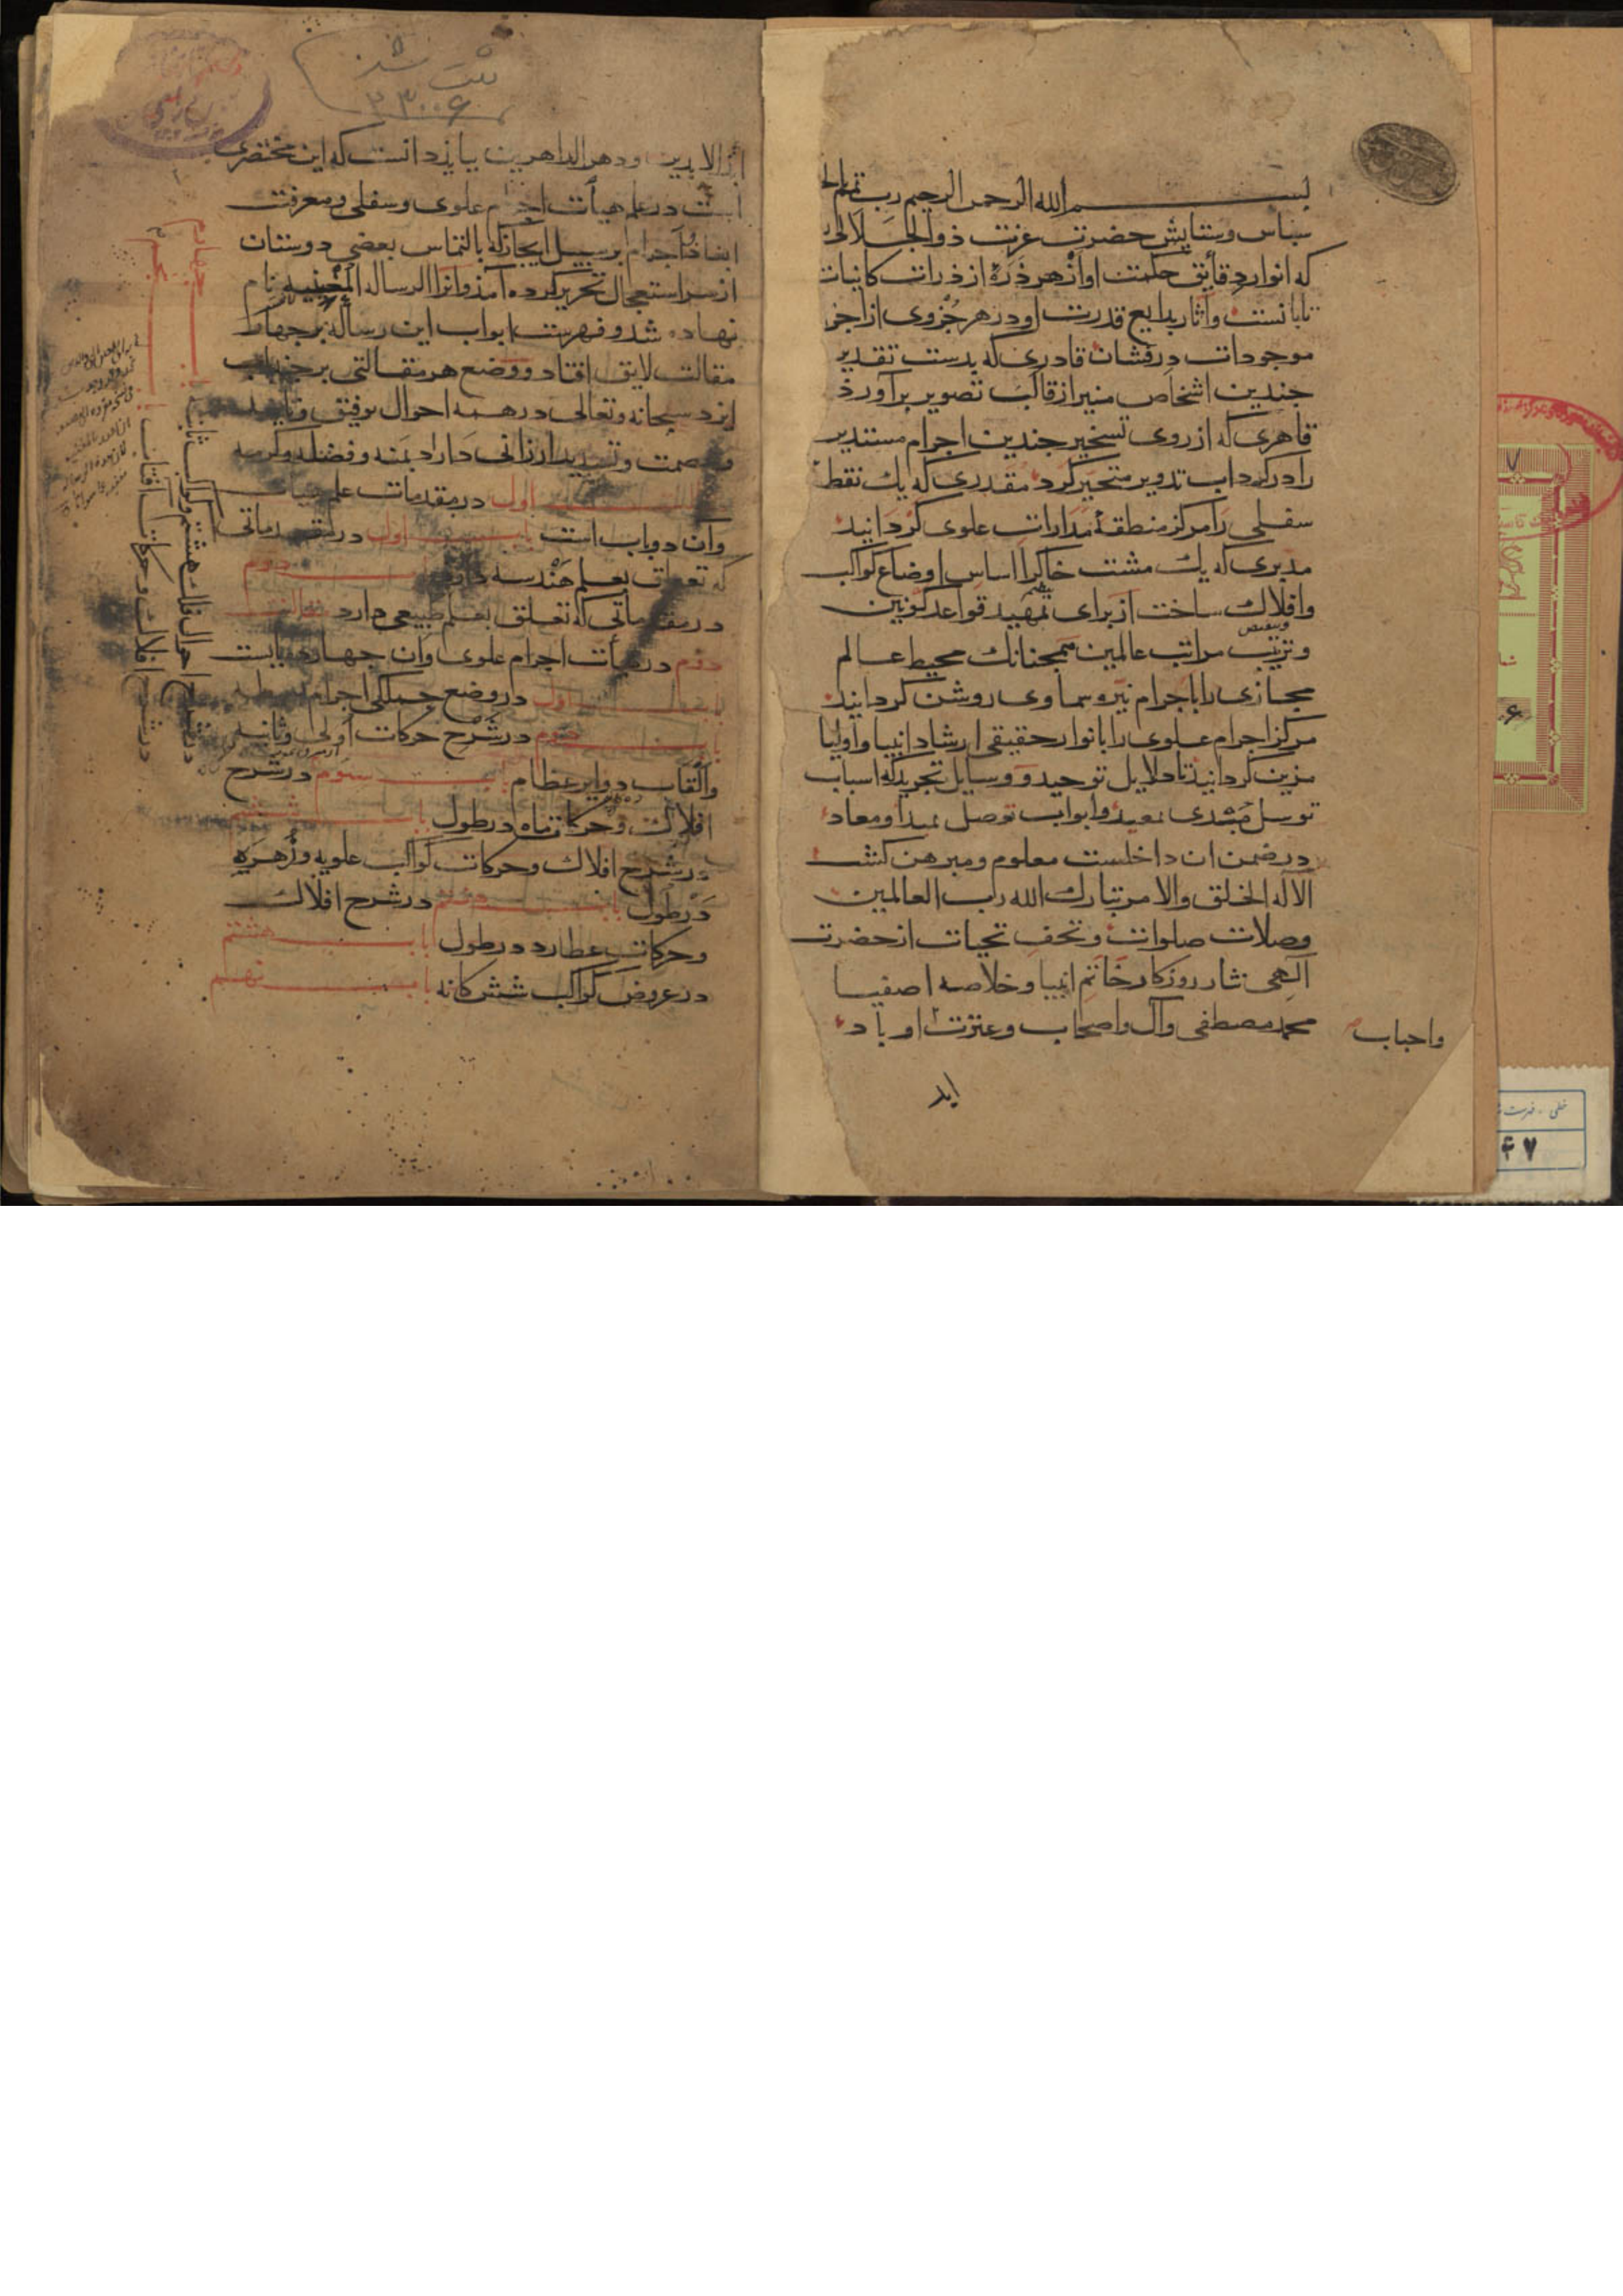 بسم الله الرحمن الرحیم رب تمم بالخیر
سباس وستایش حضرت عزت ذوالجلالی
که انوار دقایق حکمت او از هر ذره از ذرات کاینات
تابانست وآثار بدایع قدرت او در هر جزوی از اجزا
موجودات درفشان قادری که بدست تقدیر
جندین اشخاص منیر از قالب تصویر برآورد
قاهری که از روی تسخیر جندین اجرام مستدیر
را در کرداب تدویر متحیر کرد مقدری که یک نقطه
سفلی را مرکز منطقهٔ مدارات علوی کردانید
مدبری که یک مشت خاک را اساس اوضاع کواکب
وافلاک ساخت از برای تمهید قواعد کونین
وترتیب مراتب عالمین همجنانک محیط عالم
مجازی را باجرام نیره سماوی روشن کردانید
مرکز اجرام علوی را بانوار حقیقی ارشاد انبیا واولیا
مزین کردانید تا دلایل توحید ووسایل تجرید که اسباب
توسل مبدی معید وابواب توصل بمبدا ومعاد
در ضمن ان داخلست معلوم ومبرهن کشت
الا له الخلق والامر تبارک الله رب العالمین
وصلات صلوات وتحف تحیات از حضرت
الهی نثار روزکار خاتم انبیا وخلاصه اصفیا
محمد مصطفی وآل واصحاب وعترت او باد
واحباب
ابد
ثبت شد
۲۳۰۰۶
ابد الابدین ودهر الداهرین بباید دانست که این مختصری
است در علم هیأت اجرام علوی وسفلی ومعرفت
ابعاد اجرام بر سبیل ایجاز که بالتماس بعضی دوستان
از سر استعجال تحریر کرده آمد وانرا الرساله المعینیه نام
نهاده شد وفهرست ابواب این رساله بر جهار
مقالت لایق افتاد ووضع هر مقالتی بر جند باب
ایزد سبحانه وتعالی در همه احوال توفیق وتایید
وعصمت وتسدید ارزانی داراد بمنه وفضله وکرمه
اول در مقدمات علم هیات
وآن دو باب است باب اول در مقدماتی
که تعلق بعلم هندسه دارد باب دوم
در مقدماتی که تعلق بعلم طبیعی دارد مقالت
دوم در هیأت اجرام علوی وآن جهارده بابست
باب اول در وضع جملکی اجرام بسیطه
باب دوم در شرح حرکات اولی وثانیه
والقاب دوایر عظام باب سوم در شرح
جهارم
در شرح احوال فلک هشتم وکواکب ثابته
باب پنجم
در شرح افلاک وحرکات آفتاب
افلاک وحرکات ماه در طول باب ششم
در شرح افلاک وحرکات کواکب علویه وزهره
در طول باب در شرح افلاک
وحرکات عطارد در طول باب هشتم
در عروض کواکب شش کانه باب نهم
۶
۴۷